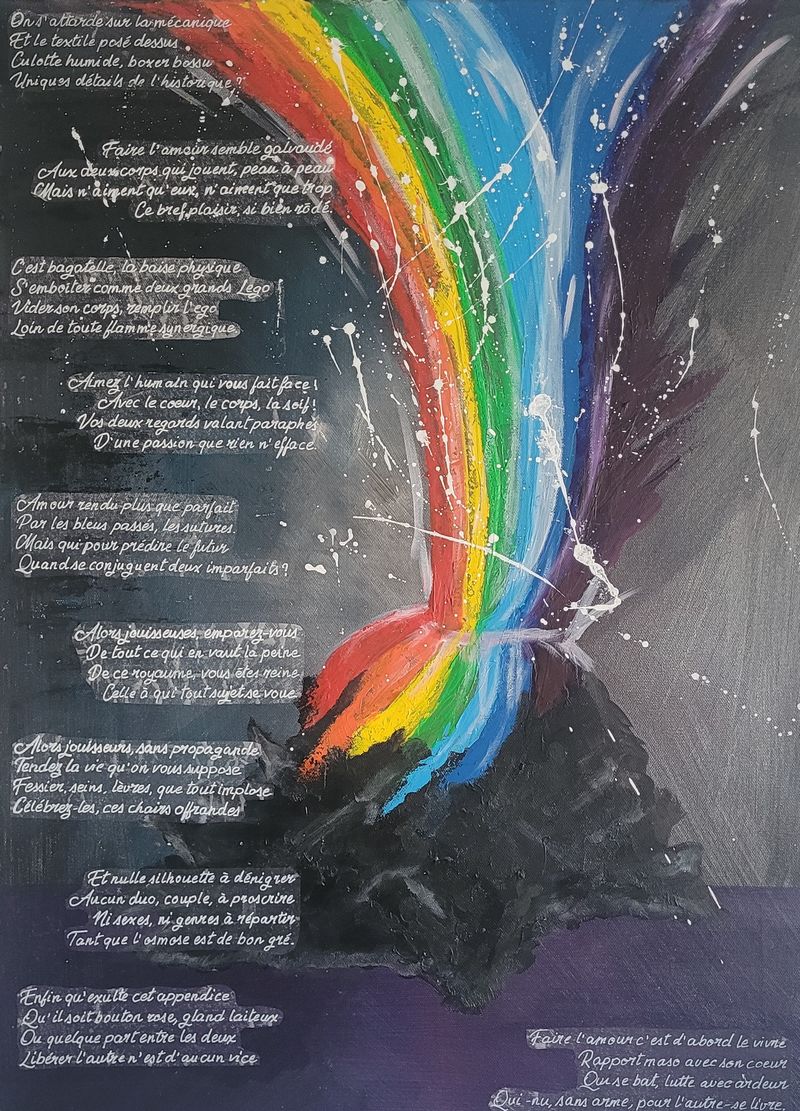 On s'attarde sur la mécanique
Et le textile posé dessus
Culotte humide, boxer bossu
Uniques détails de l'historique ?
Faire l'amour semble galvaudé
Aux deux corps qui jouent, peau à peau
Mais n'aiment qu'eux, n'aiment que trop
Ce bref plaisir, si bien rôdé.
C'est bagatelle, la baise physique
S'emboiter comme deux grands Légo
Vider son corps, remplir l'ego
Loin de toute flamme synergique.
Aimez l'humain qui vous fait face !
Avec le coeur, le corps, la soif !
Vos deux regards valant paraphes
D'une passion que rien n'efface.
Amour rendu plus que parfait
Par les bleus passés, les sutures.
Mais qui pour prédire le futur
Quand se conjuguent deux imparfaits ?
Alors jouisseuses, emparez-vous
De tout ce qui en vaut la peine
De ce royaume, vous êtes reine
Celle à qui tout sujet se voue.
Alors jouisseurs, sans propagande
Tendez la vie qu'on vous suppose
Fessier, seins, lèvres, que tout implose
Célébrez-les, ces chairs offrandes
Et nulle silhouette à dénigrer
Aucun duo, couple, à proscrire
Ni sexes, ni genres à répartir
Tant que l'osmose est de bon gré.
Enfin qu'exulte cet appendice
Qu'il soit bouton rose, gland laiteux
Ou quelque part entre les deux
Libérer l'autre n'est d'aucun vice
Faire l'amour c'est d'abord le vivre
Rapport maso avec son coeur
Qui se bat, lutte avec ardeur
Qui -nu, sans arme, pour l'autre- se livre.